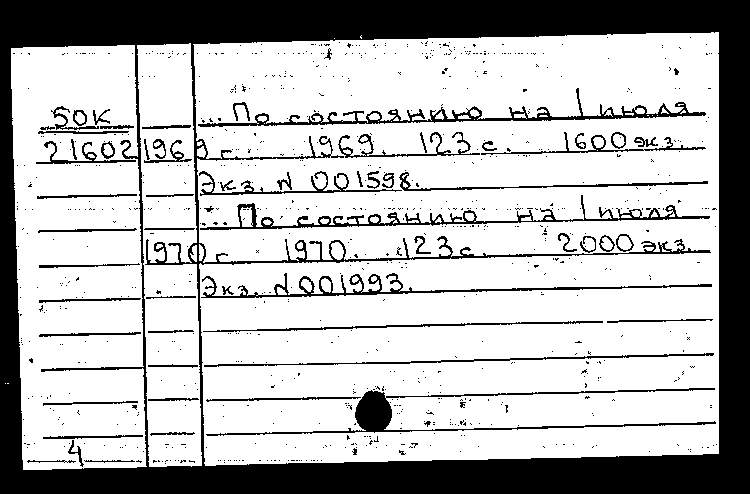 50К ... По состоянию на 1 июля
21602 1969 г. 1969. 123 с. 1600 экз.
Экз. N 001598.
... По состоянию на 1 июля
1970 г. 1970. 123 с. 2000 экз.
Экз. N 001993.
4